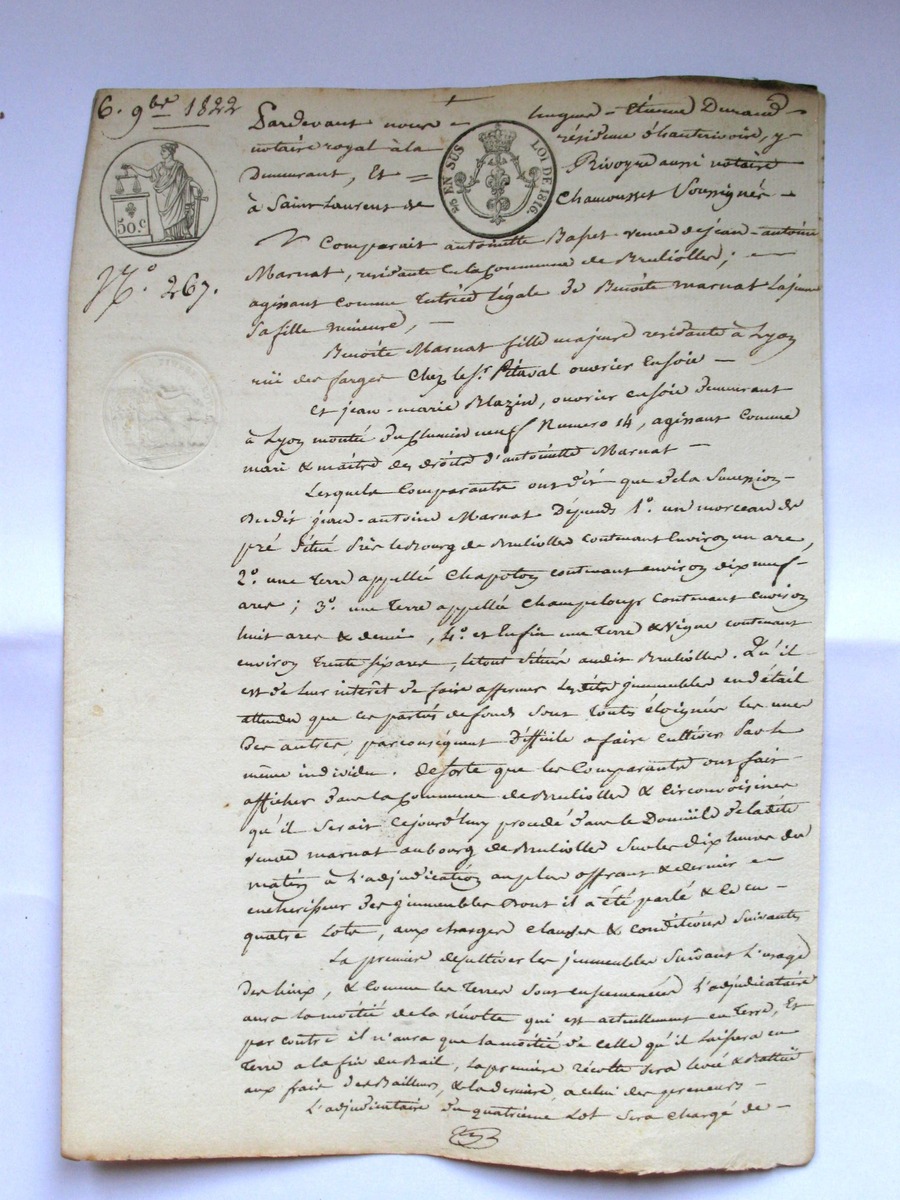 6. 9bre 1822
50.C
25 EN SUS
LOI DE 1816.
N.o 267.
Pardevant nous hugues - Etienne Durand
notaire royal à la résidence d'hauterivoire, y
Demeurant, Et = Rivoyre aussi notaire
à Saint Laurent de Chamousset Soussignés -
Comparait antoinette veuve de jean - antoine
Marnat, residante en la Commune de Brulioles; -
agissant comme tutrice légale de Benoite marnat Lajeune
Sa fille mineure, -
Benoite Marnat fille majeure residante à Lyon
rüe des farges Chez le Sr. Pitaval ouvrier En soie -
Et jean - marie Blazin, ouvrier en soie demeurant
à Lyon montée du Chemin neuf Numero 14, agissant Comme
mari & maitre des droits d'antoinette Marnat -
Lesquels Comparants ont dit que de la Succession -
Dudit jean - antoine Marnat Dépends 1o. un morceau de
pré Situé près le Bourg de Brulioles contenant Environ un are,
2o. une terre appellée Chapoton contenant environ dix neuf -
ares; 3o. une terre appellée Champeloup contenant environ
huit ares & demi, 4o. et Enfin une terre & Vigne contenant
environ trente six ares, le tout Situés audit Brulioles. Qu'il -
est de leur intérêt de faire affermer Lesdits jmmeubles en détail
attendu que ces parties de fonds sont toutes éloignées les unes
Des autres, par conséquent Difficile a faire cultiver Par le
même individu. de sorte que les Comparants ont fait -
afficher dans la Commune de Brulioles & Circonvoisines
qu'il Serait Cejourd'huy procédé dans le Domicile de ladite
veuve marnat au bourg de Brulioles Sur les dix heures du
matin à L'adjudication au plus offrant & dernier -
encherisseur des jmmeubles dont il a été parlé & Ce en -
quatre Lots, aux charges clauses & conditions Suivantes
La premiere de cultiver les jmmeubles Suivant L'usage
Des lieux, & comme les terres sont ensemencées L'adjudicataire
aura la moitié de la récolte qui est actuellement en terre, Et
par contre il n'aura que la moitié de celle qu'il laissera en
terre a la fin du Bail, La premiere récolte sera levée & Battüe
aux frais des Bailleurs, & la derniere, a celui des preneurs -
L'adjudicataire du quatrieme Lot Sera chargé de -